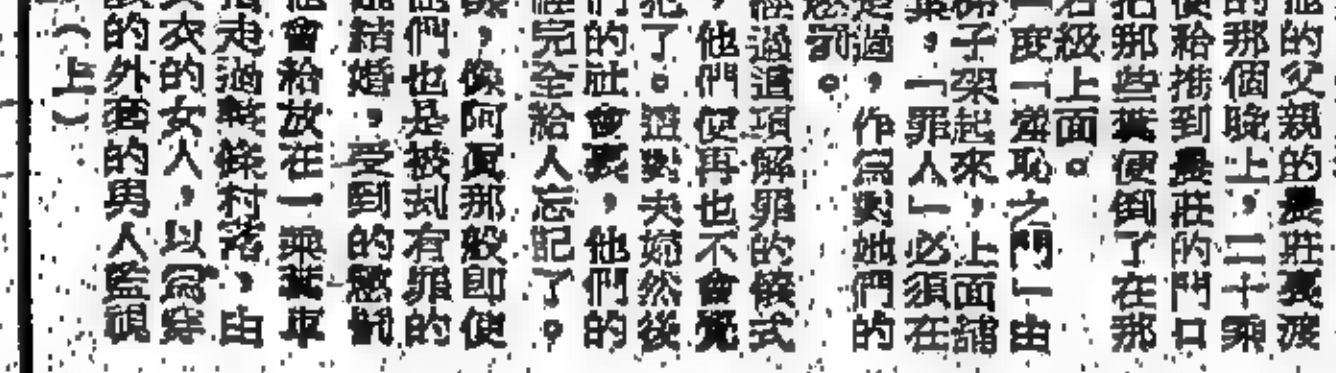 他的父親的農莊裏渡
的那個晚上，二十乘
便給推到農莊的門口
把那些糞便倒了在那
石級上面。
一度「羞恥之門」由
梯子架起來，上面鋪
葉，「罪人」必須在
走過，作為對她們的
懲罰。
經過這項解罪的儀式
，他們便再也不會覺
犯了。這對夫婦然後
們的社會裏，他們的
經完全給人忘記了。
，像阿根那般即使
他們也是被判有罪的
結婚，受到的懲罰
會給放在一乘糞車
走過整條村落，由
衣的女人，以為穿
的外套的男人監視
（上）